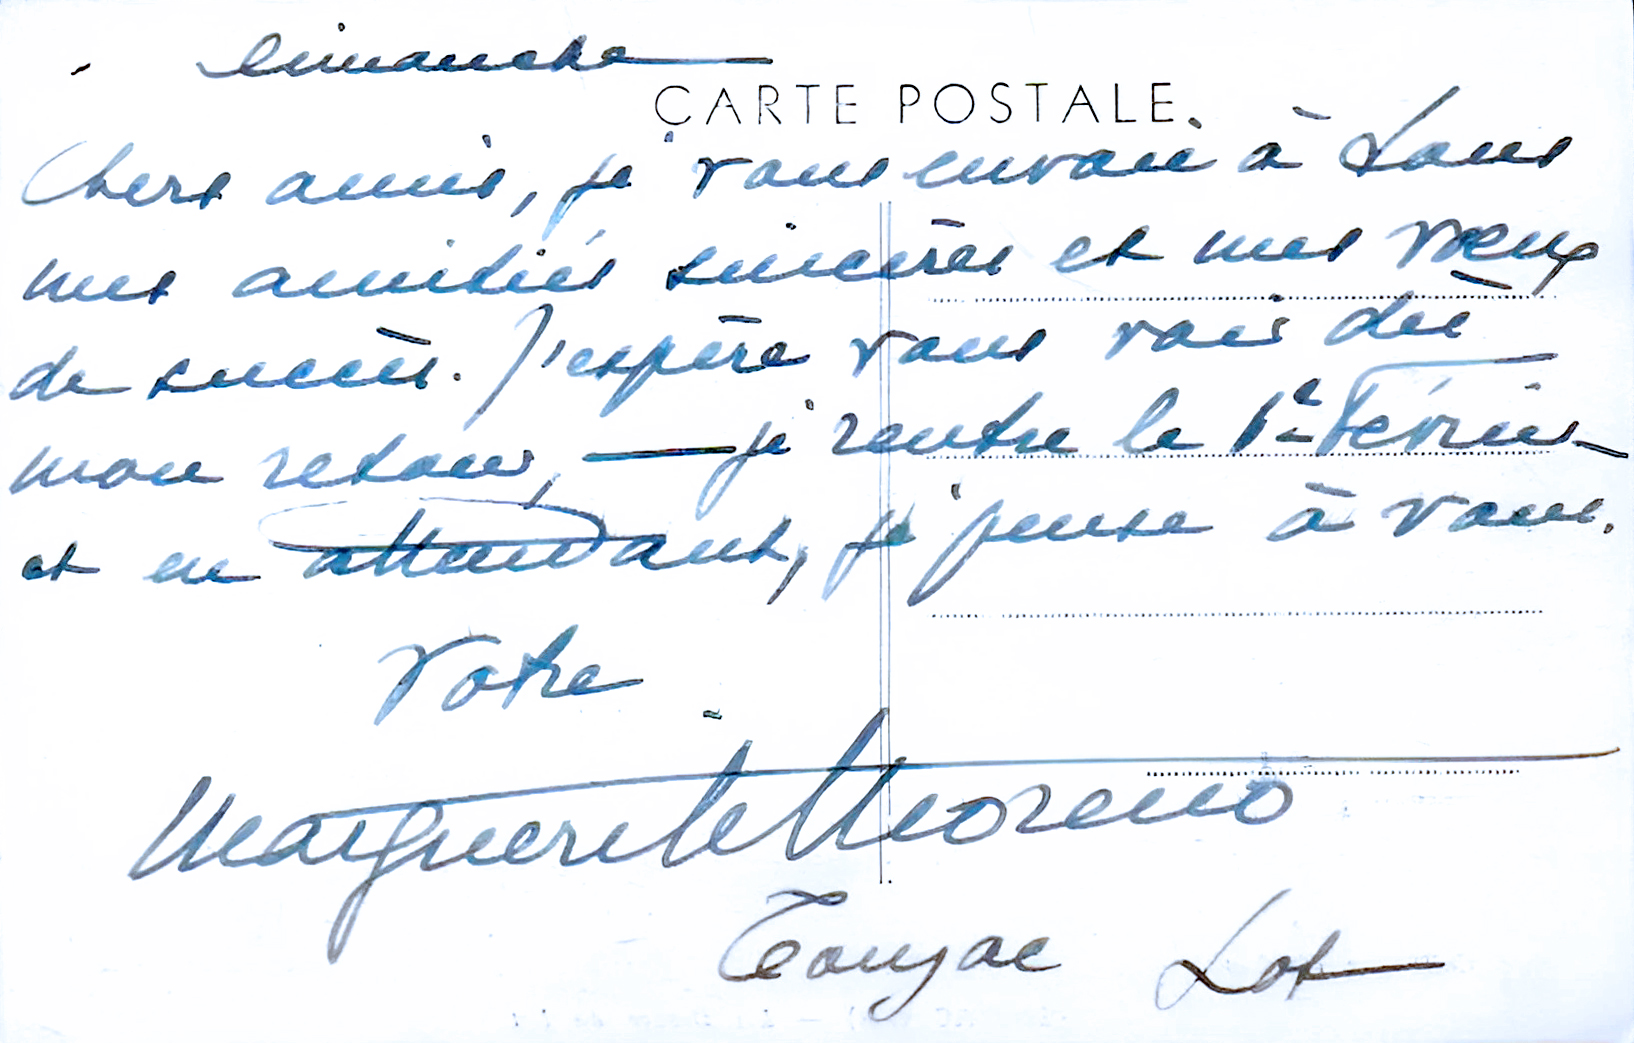 Dimanche
CARTE POSTALE.
Chers amis, je vous envoie à tous
mes amitiés sincères et mes vœux
de succès. J'espère vous voir dès
mon retour, — je rentre le 1er Février —
et en attendant, je pense à vous.
Votre
Marguerite Moreno
Touzac Lot